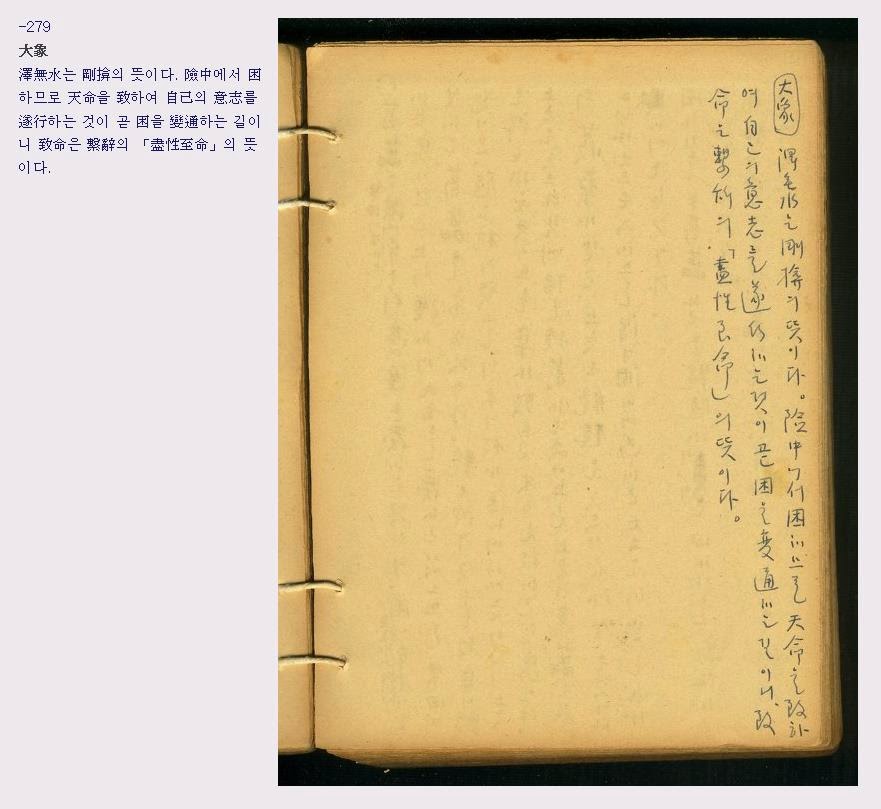 -279
大象
澤無水는 剛揜의 뜻이다. 險中에서 困
하므로 天命을 致하여 自己의 意志를
遂行하는 것이 곧 困을 變通하는 길이
니 致命은 繫辭의 「盡性至命」의 뜻
이다.
大象 澤無水는 剛揜의 뜻이다。險中에서 困하므로 天命을 致하
여 自己의 意志를 遂行하는 것이 곧 困을 變通하는 길이니、致
命은 繫辭의 「盡性至命」의 뜻이다。